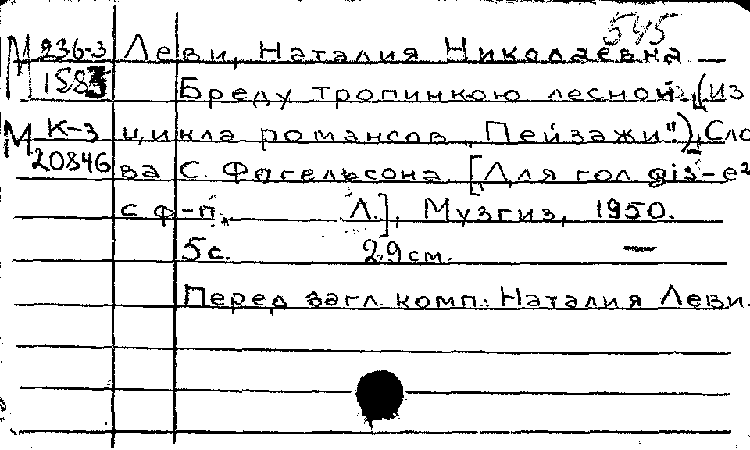 545
М 236-3 Леви, Наталия Николаевна
1583 Бреду тропинкою лесной. (Из
М К-3 цикла романсов „Пейзажи"). Сло
20846 ва С. Фогельсона. [Для гол. gis-e²
с ф-п. Л.], Музгиз, 1950.
5 с. 29 см. —
Перед загл. комп. Наталия Леви.